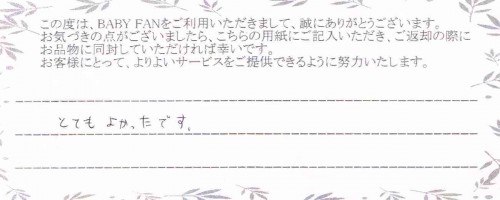 この度は、BABY FANをご利用いただきまして、誠にありがとうございます。
お気づきの点がございましたら、こちらの用紙にご記入いただき、ご返却の際に
お品物に同封していただければ幸いです。
お客様にとって、よりよいサービスをご提供できるように努力いたします。
とても よかったです。